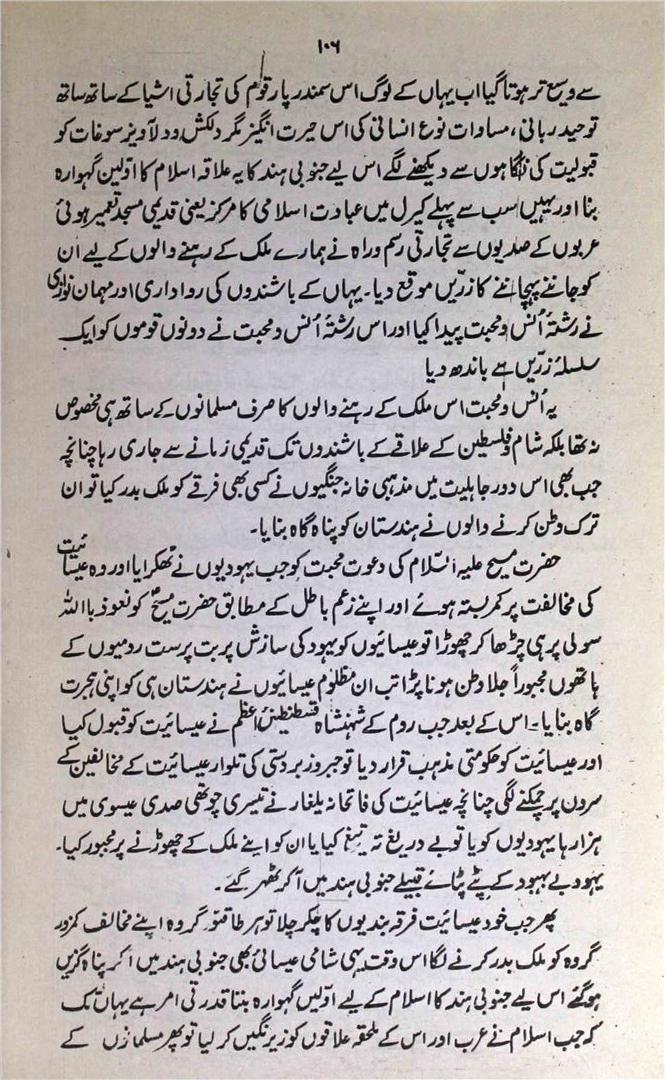 ۱۰۶
سے وسیع تر ہوتا گیا اب یہاں کے لوگ اس سمندر پار قوم کی تجارتی اشیا کے ساتھ ساتھ
توحید ربانی، مساوات نوع انسانی کی اس حیرت انگیز مگر دلکش و دلآویز سوغات کو
قبولیت کی نگاہوں سے دیکھنے لگے اس لیے جنوبی ہند کا یہ علاقہ اسلام کا اوّلین گہوارہ
بنا اور یہیں سب سے پہلے کیرل میں عبادت اسلامی کا مرکز یعنی قدیمی مسجد تعمیر ہوئی
عربوں کے صدیوں سے تجارتی رسم وراہ نے ہمارے ملک کے رہنے والوں کے لیے ان
کو جاننے پہچاننے کا زرّیں موقع دیا۔ یہاں کے باشندوں کی رواداری اور مہمان نوازی
نے رشتۂ اُنس و محبت پیدا کیا اور اس رشتۂ اُنس و محبت نے دونوں قوموں کو ایک
سلسلۂ زرّیں سے باندھ دیا
یہ اُنس و محبت اس ملک کے رہنے والوں کا صرف مسلمانوں کے ساتھ ہی مخصوص
نہ تھا بلکہ شام و فلسطین کے علاقے کے باشندوں تک قدیمی زمانے سے جاری رہا چنانچہ
جب بھی اس دور جاہلیت میں مذہبی خانہ جنگیوں نے کسی بھی فرقے کو ملک بدر کیا تو ان
ترک وطن کرنے والوں نے ہندستان کو پناہ گاہ بنایا۔
حضرت مسیح علیہ السّلام کی دعوت محبت کو جب یہودیوں نے ٹھکرایا اور وہ عیسائیت
کی مخالفت پر کمربستہ ہوئے اور اپنے زعم باطل کے مطابق حضرت مسیحؑ کو نعوذ باللہ
سولی پر ہی چڑھا کر چھوڑا تو عیسائیوں کو یہود کی سازش پر بت پرست رومیوں کے
ہاتھوں مجبوراً جلا وطن ہونا پڑا تب ان مظلوم عیسائیوں نے ہندستان ہی کو اپنی ہجرت
گاہ بنایا۔ اس کے بعد جب روم کے شہنشاہ قسطنطین اعظم نے عیسائیت کو قبول کیا
اور عیسائیت کو حکومتی مذہب قرار دیا تو جبر و زبردستی کی تلوار عیسائیت کے مخالفین کے
سروں پر چمکنے لگی چنانچہ عیسائیت کی فاتحانہ یلغار نے تیسری چوتھی صدی عیسوی میں
ہزارہا یہودیوں کو یا تو بے دریغ تہ تیغ کیا یا ان کو اپنے ملک کے چھوڑنے پر مجبور کیا۔
یہود بے بہبود کے پٹے پٹائے قبیلے جنوبی ہند میں آ کر ٹھہر گئے۔
پھر جب خود عیسائیت فرقہ بندیوں کا چکر چلا تو ہر طاقتور گروہ اپنے مخالف کمزور
گروہ کو ملک بدر کرنے لگا اس وقت یہی شامی عیسائی بھی جنوبی ہند میں آ کر پناہ گزیں
ہو گئے اس لیے جنوبی ہند کا اسلام کے لیے اوّلیں گہوارہ بننا قدرتی امر ہے یہاں تک
کہ جب اسلام نے عرب اور اس کے ملحقہ علاقوں کو زیر نگیں کر لیا تو پھر مسلمانوں کے